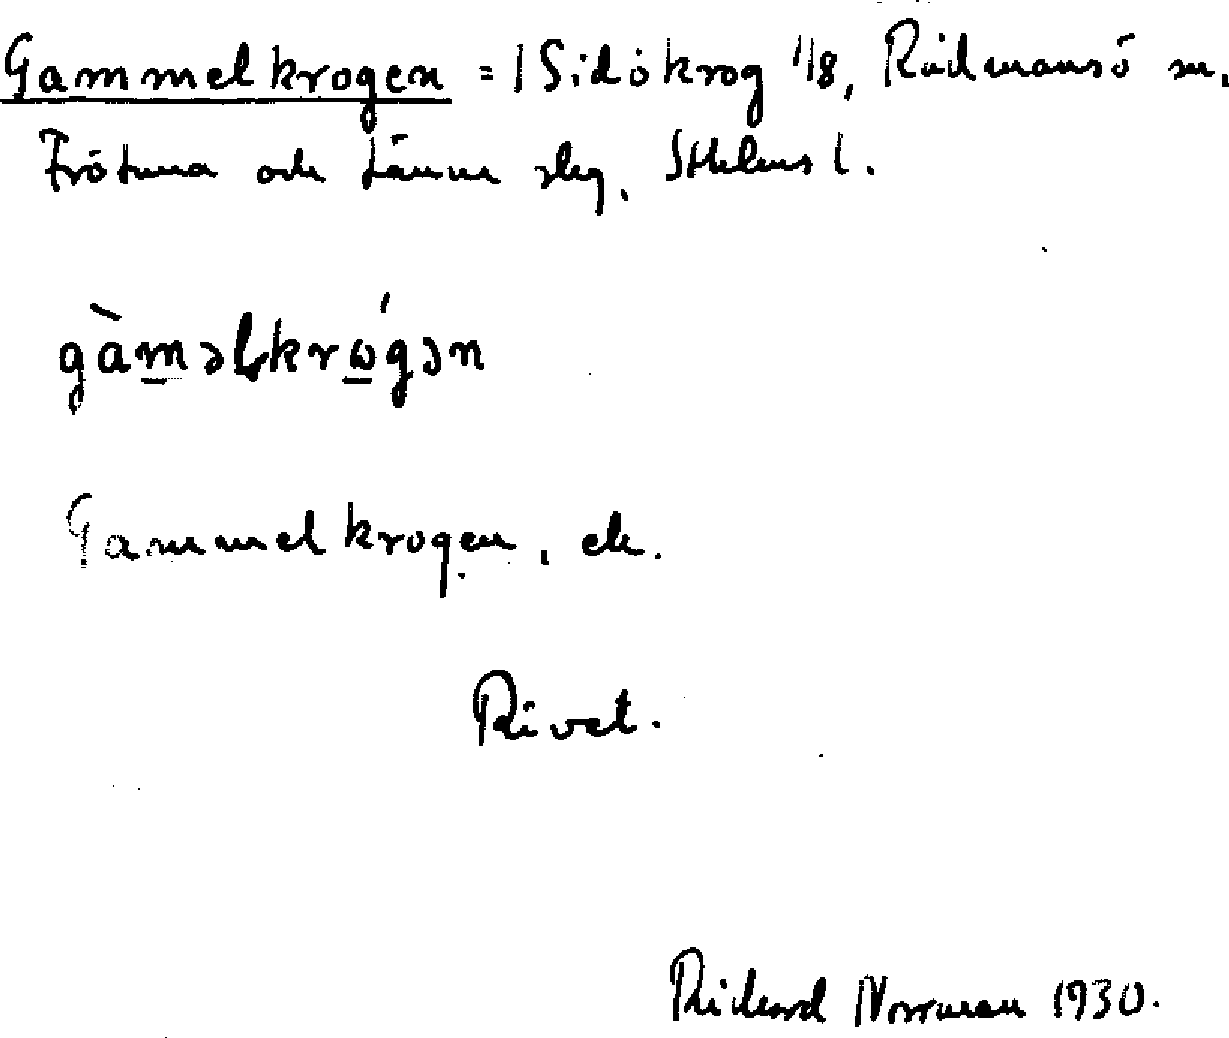 Gammelkrogen = 1 Sidökrog 1/8, Rådmansö sn.
Frötuna och Länna slg. Sthlms l.
gàməlkrógən
Gammelkrogen, ek.
Rivet.
Rickard Norrman 1930.